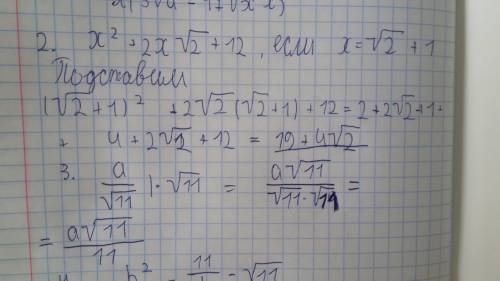 2. x² + 2x√2 + 12, если x = √2 + 1
Подставим
(√2 + 1)² + 2√2 (√2 + 1) + 12 = 2 + 2√2 + 1 +
+ 4 + 2√2 + 12 = 19 + 4√2
3. a/√11 | · √11 = a√11/√11·√11 =
= a√11/11
b² = 11/ - √11